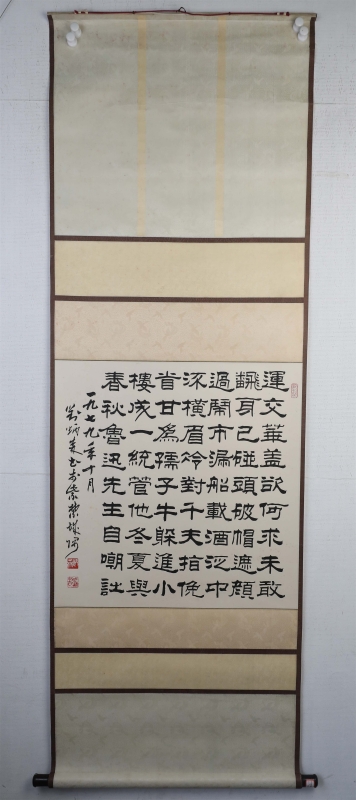 運交華蓋欲何求未敢
飜身已碰頭破帽遮顏
過鬧市漏船載酒泛中
流橫眉冷對千夫指俛
首甘爲孺子牛躲進小
樓成一統管他冬夏與
春秋魯迅先生自嘲詩
一九七九年十月
劉炳森書於紫禁城